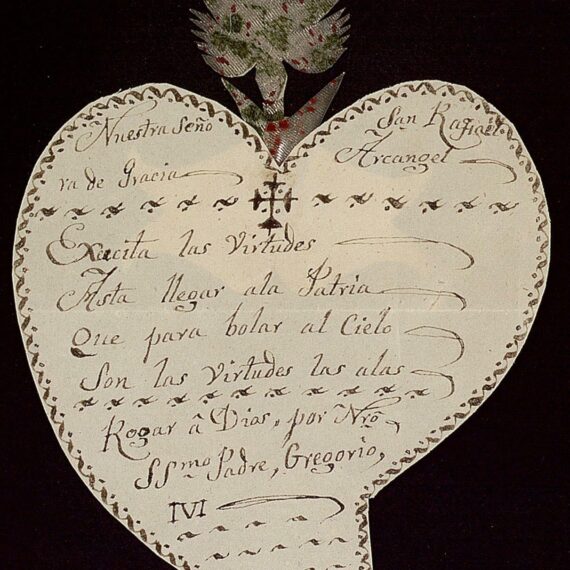 Nuestra Seño
ra de Gracia
San Rafael
Arcangel
Exscita las Virtudes
Asta llegar ala Patria
Que para bolar al Cielo
Son las Virtudes las alas
Rogar â Dios, por Nrõ
SSmo Padre, Gregorio,
IVI